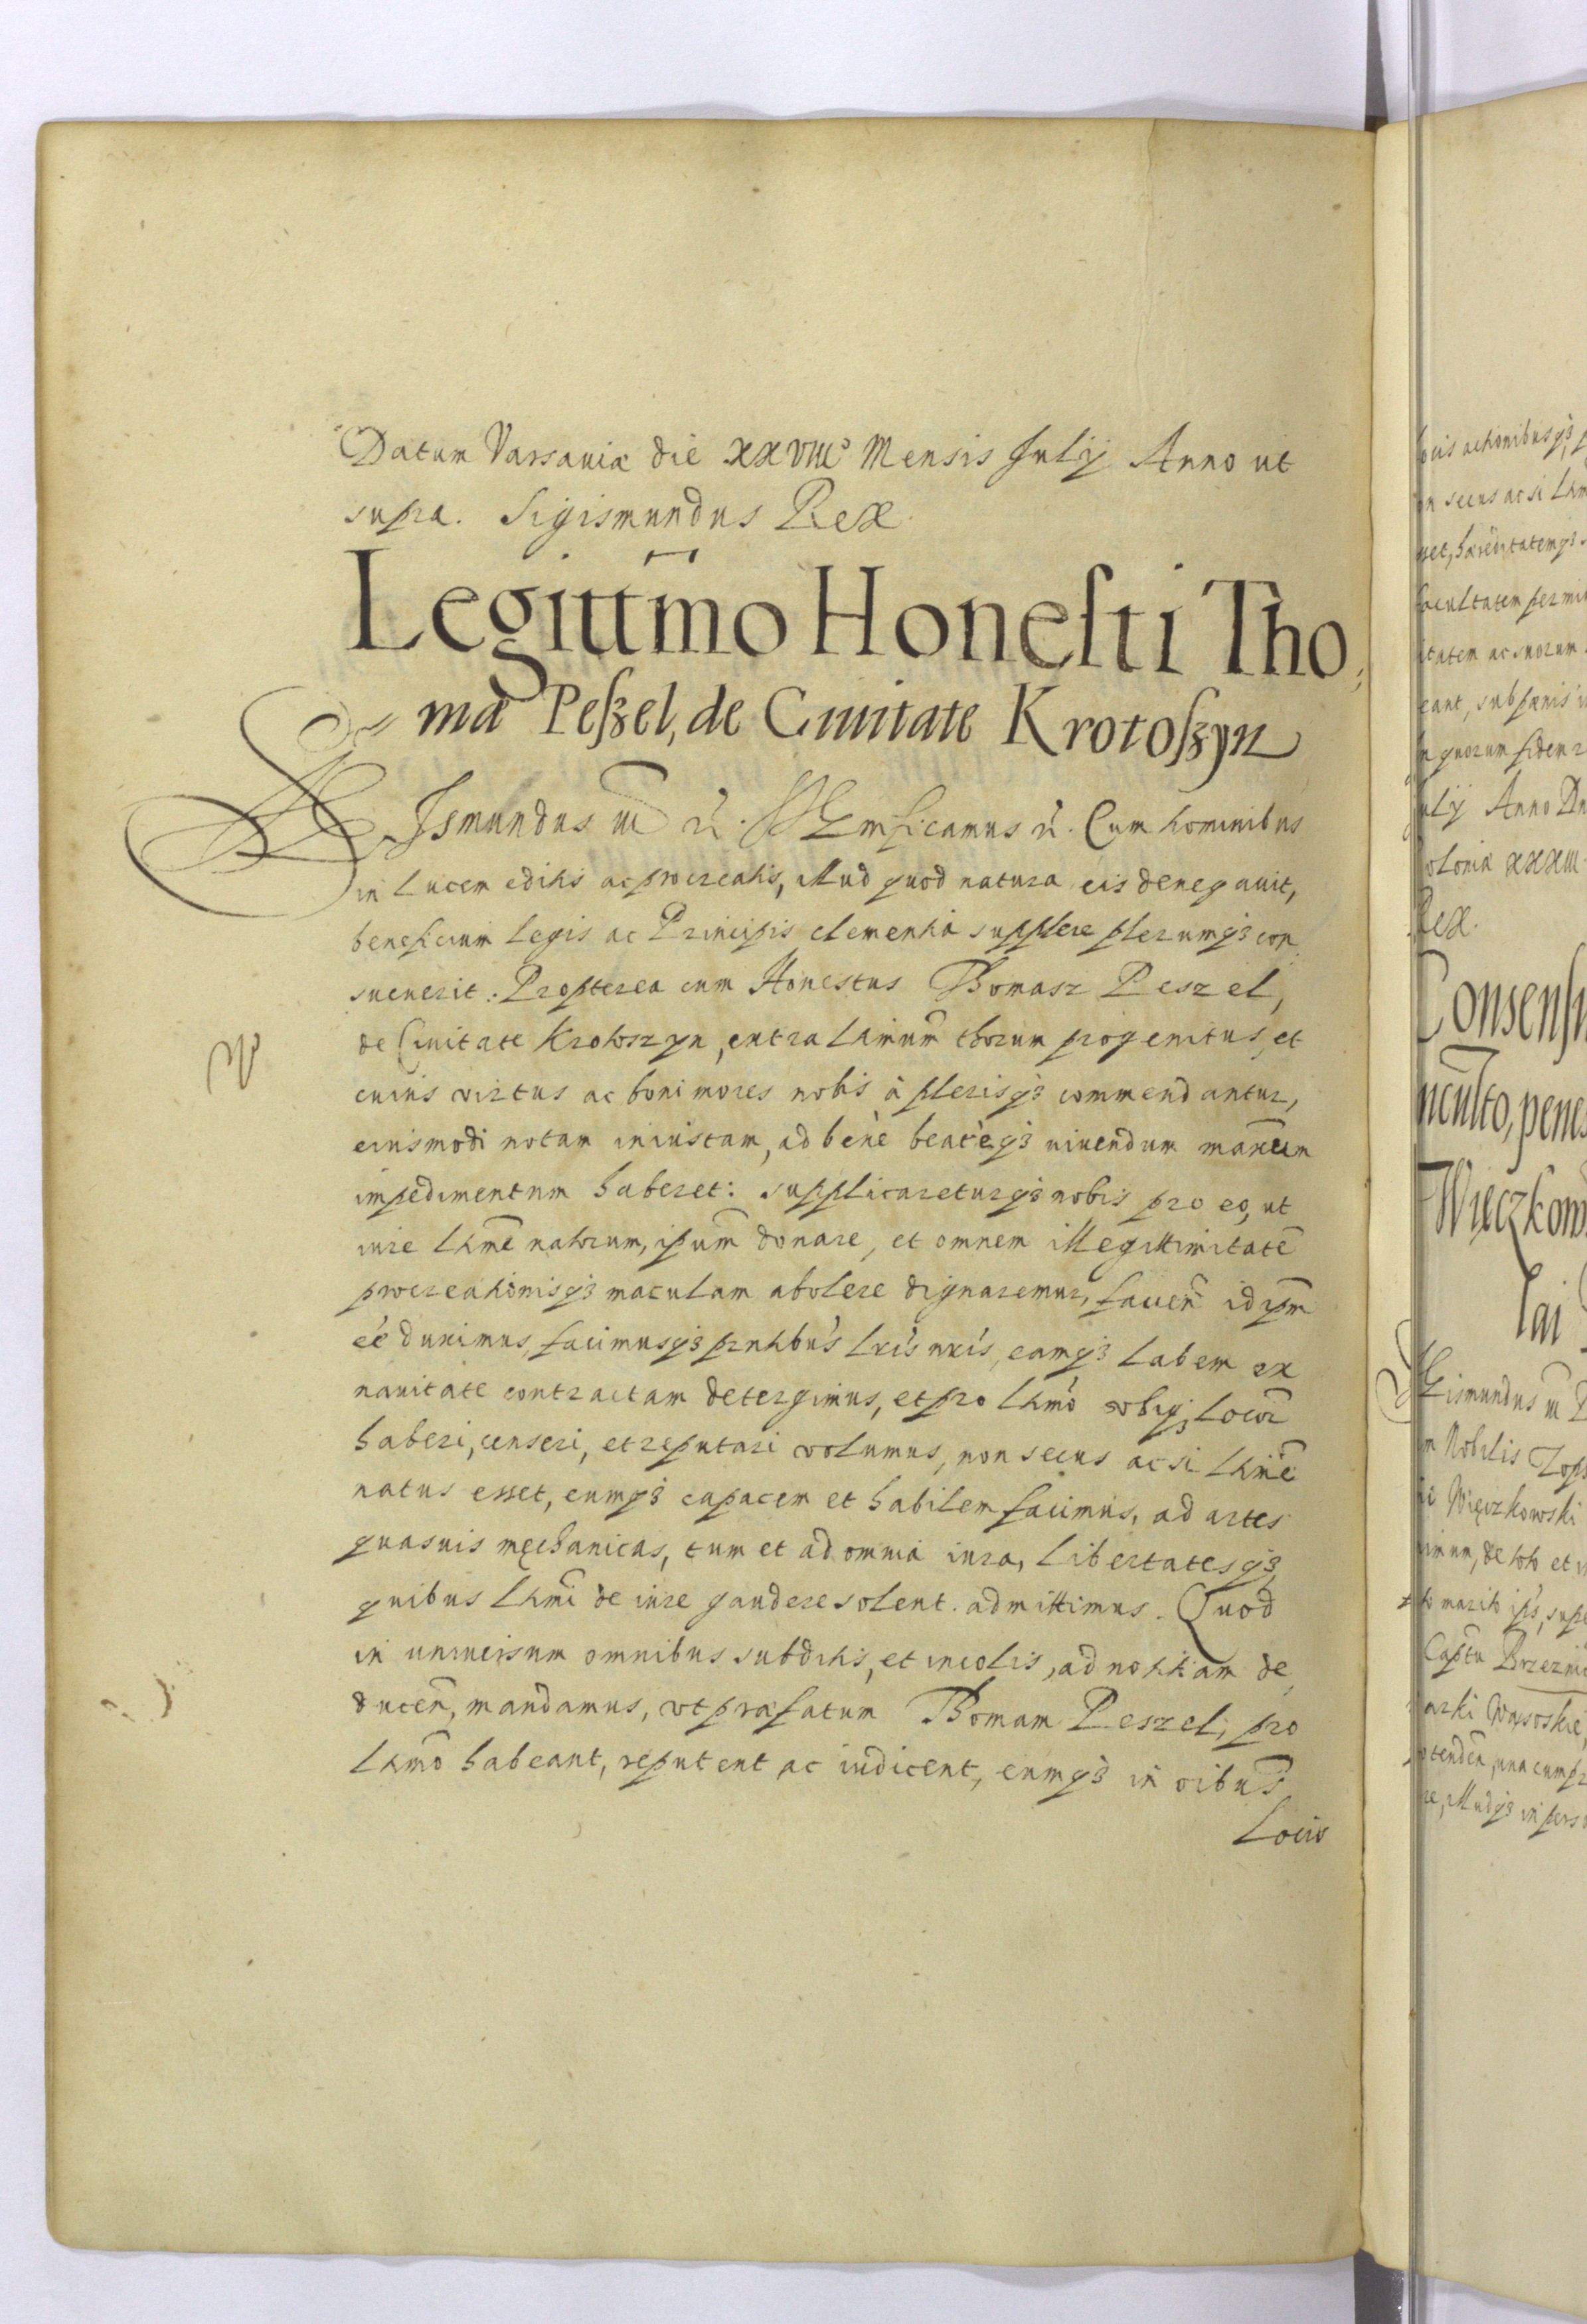 Datum Varsaviæ die XXVIII° Mensis Julij Anno ut
supra. Sigismundus Rex.
Legittimo Honesti Tho,
mæ Peszel, de Ciuitate Krotoszyn
Sigismundus III R. Significamus R. Cum hominibus
in lucem editis ac procreatis, illud quod natura eis denegauit,
beneficium legis ac Principis clementia supplere plerumqꝫ con
sueuerit: Propterea cum Honestus Thomasz Peszel,
de Ciuitate Krotoszyn, extra l̃timum thorum progenitus, et
cuius virtus ac boni mores nobis à plerisqꝫ commendantur,
eiusmodi notam iniustam, ad benè beatèqꝫ uiuendum
impedimentum haberet: supplicareturqꝫ nobis pro eo, ut
iure l̃tmẽ natorum, ipsum̃ donare, et omnem illegittimitatẽ
procreationisqꝫ maculam abolere dignaremur, facien̄ id ipm̃
eẽ duximus, facimusqꝫ pñtibus l̃ris ñris, eamqꝫ labem ex
nauitate contractam detergimus, et pro l̃tmo vbiqꝫ locor̃
haberi, censeri, et reputari volumus, non secus ac si l̃tmẽ
natus esset, eumqꝫ capacem et habilem facimus, ad artes
quasuis mechanicas, tum et ad omnia iura, libertatesqꝫ
quibus l̃tmi de iure gaudere solent. admittimus. Quod
in uniuersum omnibus subditis, et incolis, ad notitiam de,
ducen̄, mandamus, vt præfatum Thomam Peszel, pro
l̃tmo habeant, reputent ac iudicent, eumqꝫ in oibus̃
Locis
ocis actionibusqꝫ
secus ac si
sset, hæreditatemqꝫ
facultatem
itatem ac suorum
eant, sub pœnis
quorum fidem
ulij Anno
oloniæ XXXIII
Rex.
Consensu
penes
Więczkow
gismundus III
Nobilis
Więczkowski
de toto et
marito
Captũ
cum
in